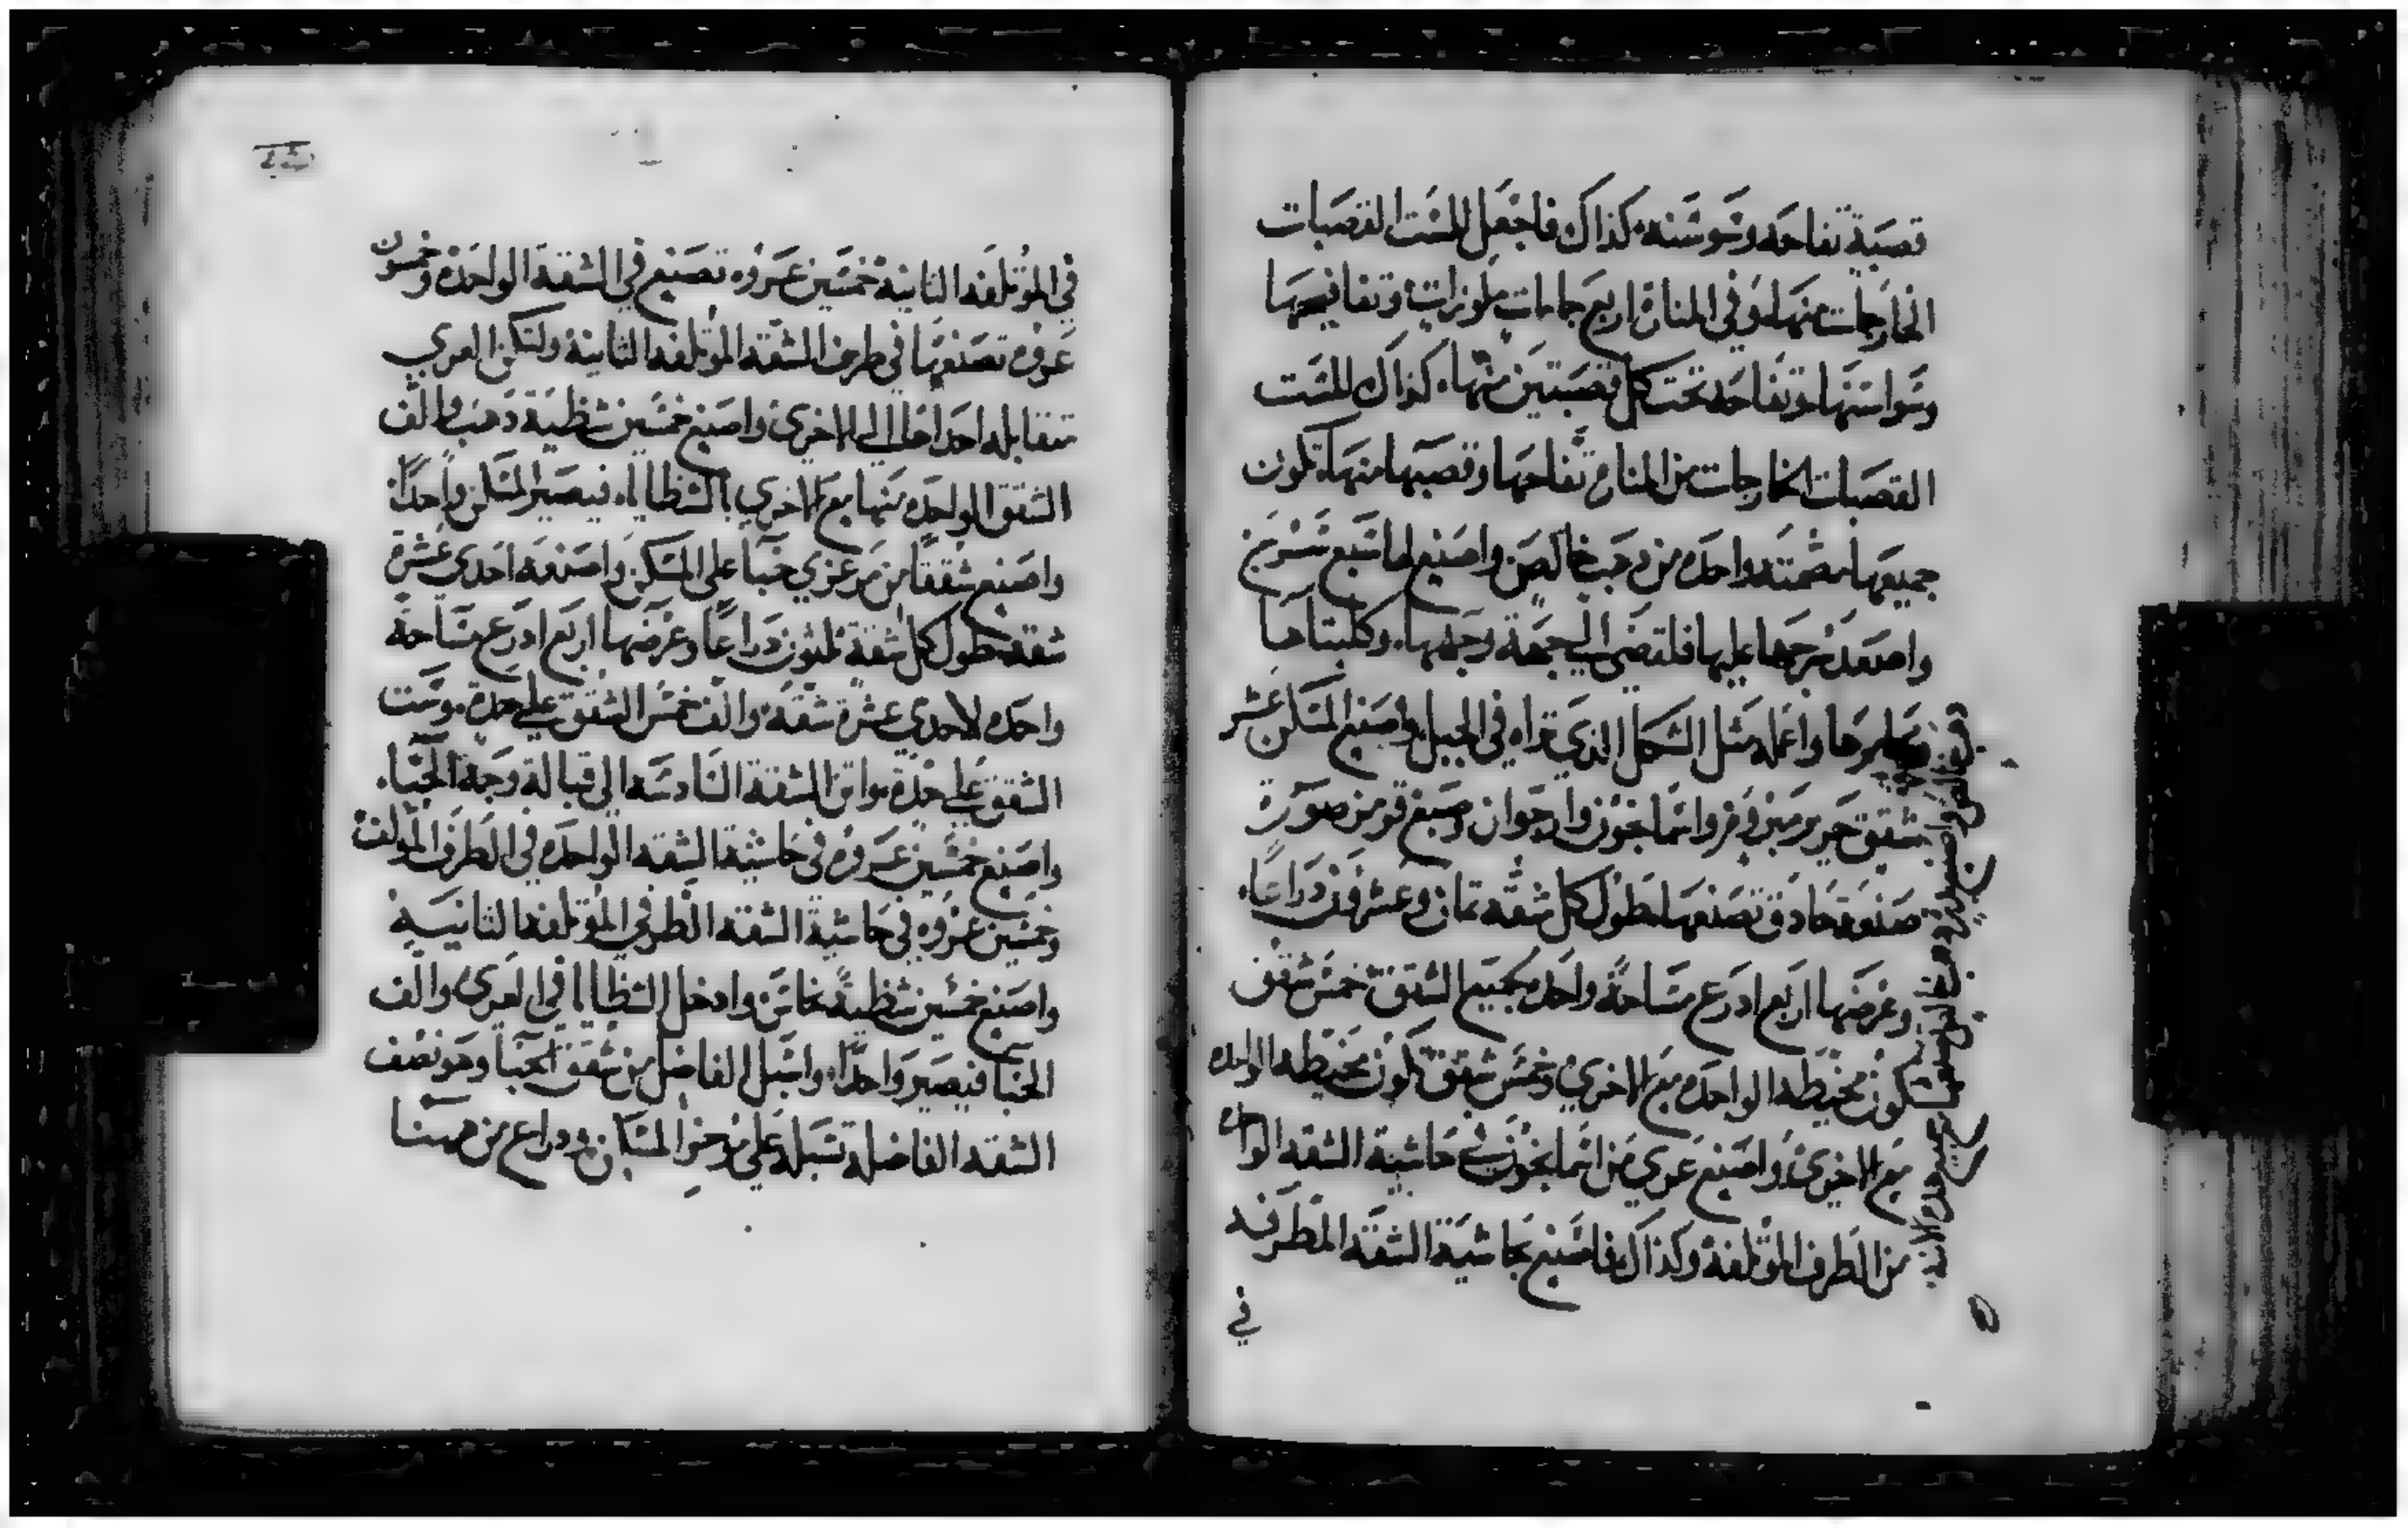 قصبة تفاحه وسوسنه كذاك فاجعل للست القصبات
الخارجات منها وفي المناره اربع جامات ملوزات وتفافيحها
وسواسنها وتفاحه تحت كل قصبتين منها كذاك للست
القصبات الخارجات من المناره تفاحها وقصبها منها تكون
جميعها مصمته واحده من دهب خالص واصنع لها سبع سرج
واصعد سرجها عليها فلتضى الي جهة وجهها وكلبتاها
ومجامرها واعمله مثل الشكل الذي تراه في الجبل واصنع المسكن عشر
شقق حرير مبزوم واسمانجون وارجوان وصبغ قرمز صورة
صنعة حادق تصنعها طول كل شقه تمان وعشرون دراعا
وعرضها اربع ادرع مساحة واحده لجميع الشقق خمس شقق
تكون مخيطه الواحده مع الاخري وخمس شقق تكون مخيطه الواحده
مع الاخري واصنع عري من اسمانجون في حاشية الشقه الواحده
من الطرف المؤتلفة وكذاك فاصنع بحاشية الشقه المطرفه
في
في المؤتلفه الثانية خمسين عروه تصنع في الشقة الواحده وخمسون
عروه تصنعها في طرف الشقه المؤتلفه الثانية ولتكن العري
متقابله احداها الي الاخري واصنع خمسين شظية دهب والف
الشقق الواحده منها مع الاخري بالشظايا فيصير المسكن واحدا
واصنع شققا من مرعزي خبا على المسكن واصنعه احدي عشرة
شقه طول كل شقة ثلثون دراعا وعرضها اربع ادرع مساحة
واحده لاحدي عشرة شقة والف خمس الشقق علي حدة وست
الشقق علي حدة واتن الشقة السادسه الي قبالة وجه الخباء
واصنع خمسين عروة في حاشية الشقه الواحده في الطرف المؤلف
وخمسين عروه في حاشية الشقه الطرفي المؤتلفه الثانية
واصنع خمسين شظية نحاس وادخل الشظايا في العري والف
الخبا فيصير واحدا واسبل الفاضل من شقق الخبا وهو نصف
الشقه الفاضلة تسبله على موخر المسكن ودراع من ههنا